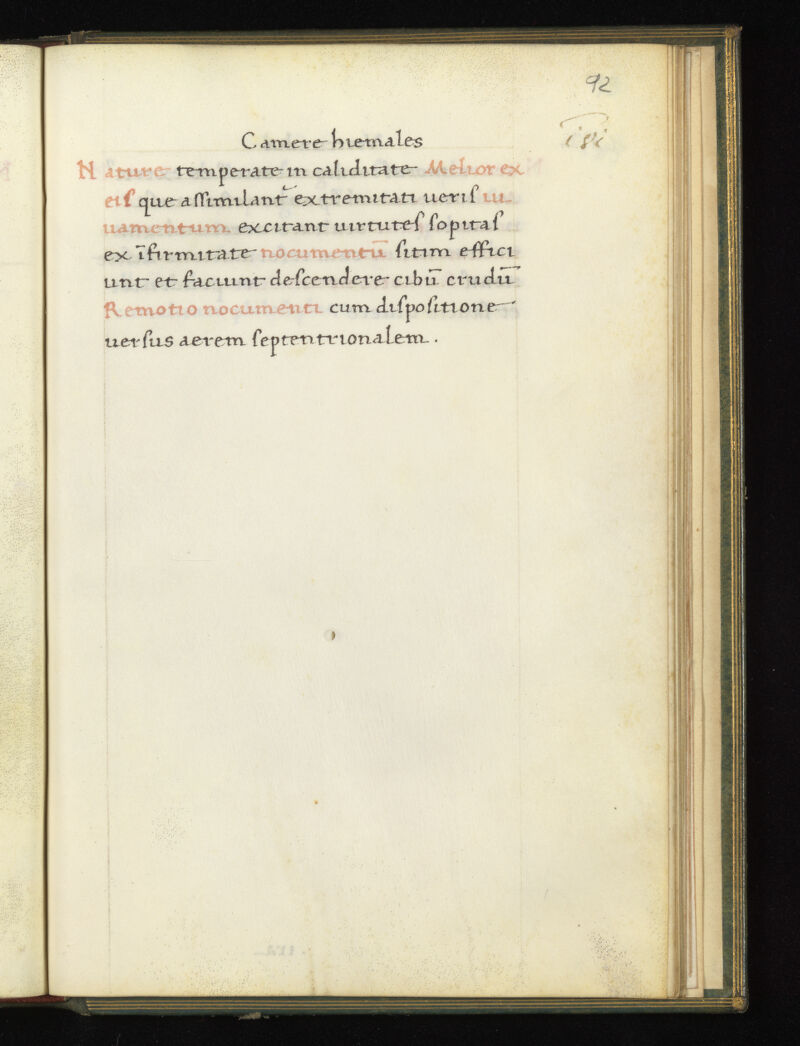 92
181
Camere hiemales
Nature temperate in caliditate Melior ex
eiſ que aſſimilant extremitati ueriſ iu
uamentum. excitant uirtuteſ ſopitaſ
ex īfirmitate nocumentū ſitim effici
unt et faciunt deſcendere cibū crudū
Remotio nocumenti cum diſpoſitione
uerſus aerem ſeptentrionalem.